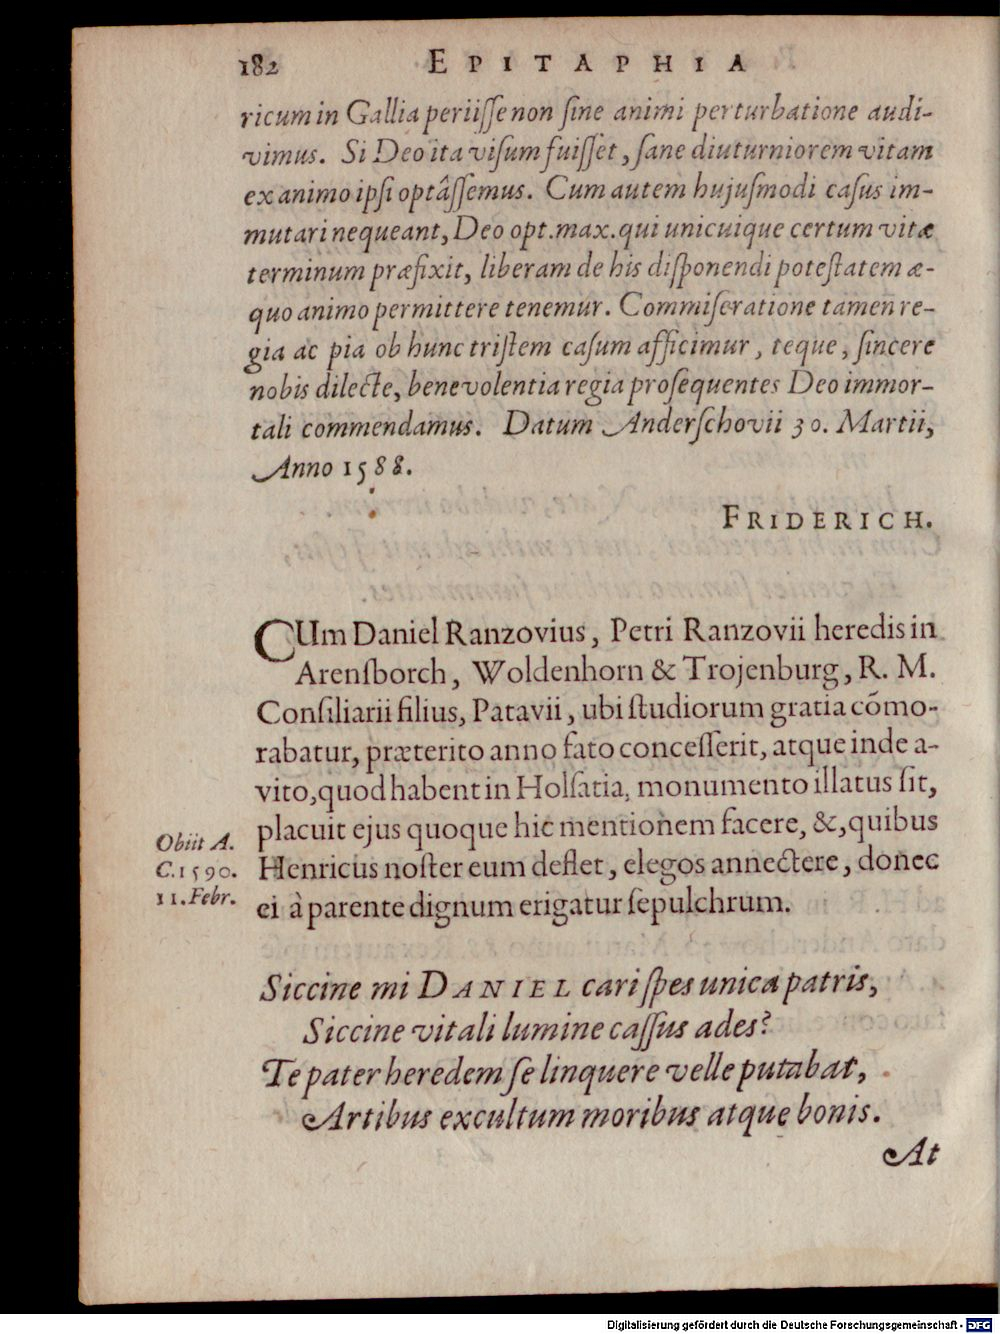 182 EPITAPHIA
ricum in Gallia periiſſe non ſine animi perturbatione audi-
vimus. Si Deo ita viſum fuiſſet, ſane diuturniorem vitam
ex animo ipſi optâſſemus. Cum autem hujuſmodi caſus im-
mutari nequeant, Deo opt. max. qui unicuique certum vitæ
terminum præfixit, liberam de his diſponendi poteſtatem æ-
quo animo permittere tenemur. Commiſeratione tamen re-
gia ac pia ob hunc triſtem caſum afficimur, teque, ſincere
nobis dilecte, benevolentia regia proſequentes Deo immor-
tali commendamus. Datum Anderſchovii 30. Martii,
Anno 1588.
FRIDERICH.
CUm Daniel Ranzovius, Petri Ranzovii heredis in
Arenſborch, Woldenhorn & Trojenburg, R. M.
Conſiliarii filius, Patavii, ubi ſtudiorum gratia cõmo-
rabatur, præterito anno fato conceſſerit, atque inde a-
vito, quod habent in Holſatia, monumento illatus ſit,
placuit ejus quoque hic mentionem facere, &, quibus
Henricus noſter eum deflet, elegos annectere, donec
ei à parente dignum erigatur ſepulchrum.
Obiit A.
C. 1590.
11. Febr.
Siccine mi DANIEL cari ſpes unica patris,
Siccine vitali lumine caſſus ades?
Te pater heredem ſe linquere velle putabat,
Artibus excultum moribus atque bonis.
At
Digitalisierung gefördert durch die Deutsche Forschungsgemeinschaft - DFG